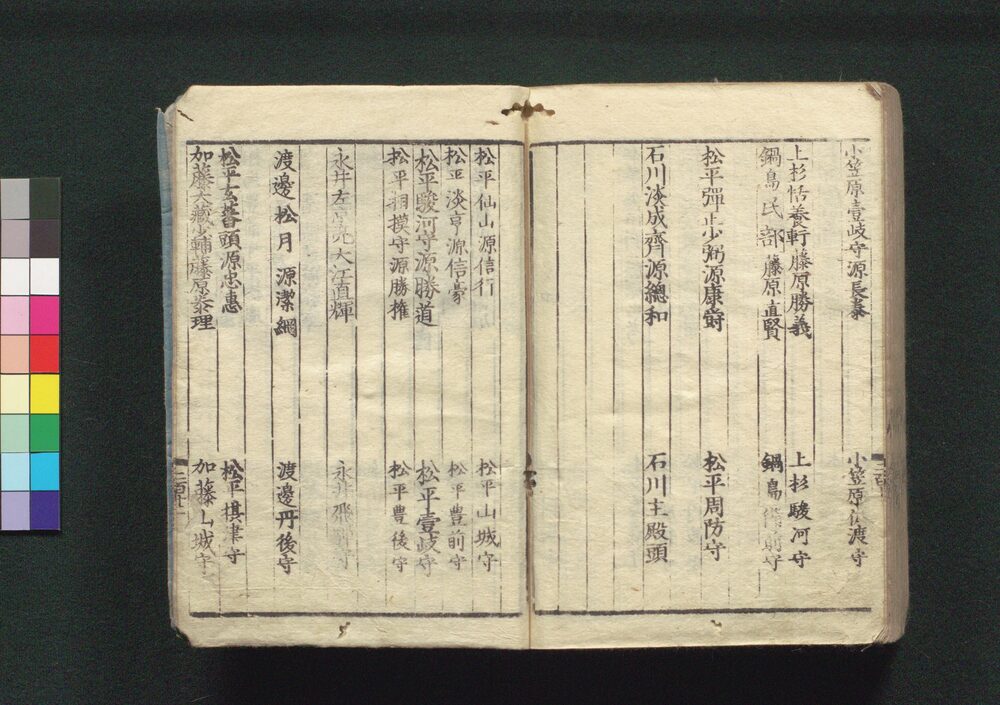 小笠原壹岐守源長泰 小笠原佐渡守
上杉恬養軒藤原勝義 上杉駿河守
鍋島民部藤原直賢 鍋島備前守
松平彈正少弼源康爵 松平周防守
石川淡成齊源總和 石川主殿頭
松平仙山源信行 松平山城守
松平淡亨源信豪 松平豊前守
松平駿河守源勝道 松平壹岐守
松平相摸守源勝権 松平豊後守
永井左京亮大江直輝 永井飛騨守
渡邊松月源潔綱 渡邊丹後守
松平玄蕃頭源忠惠 松平摂津守
加藤大藏少輔藤原泰理 加藤山城守